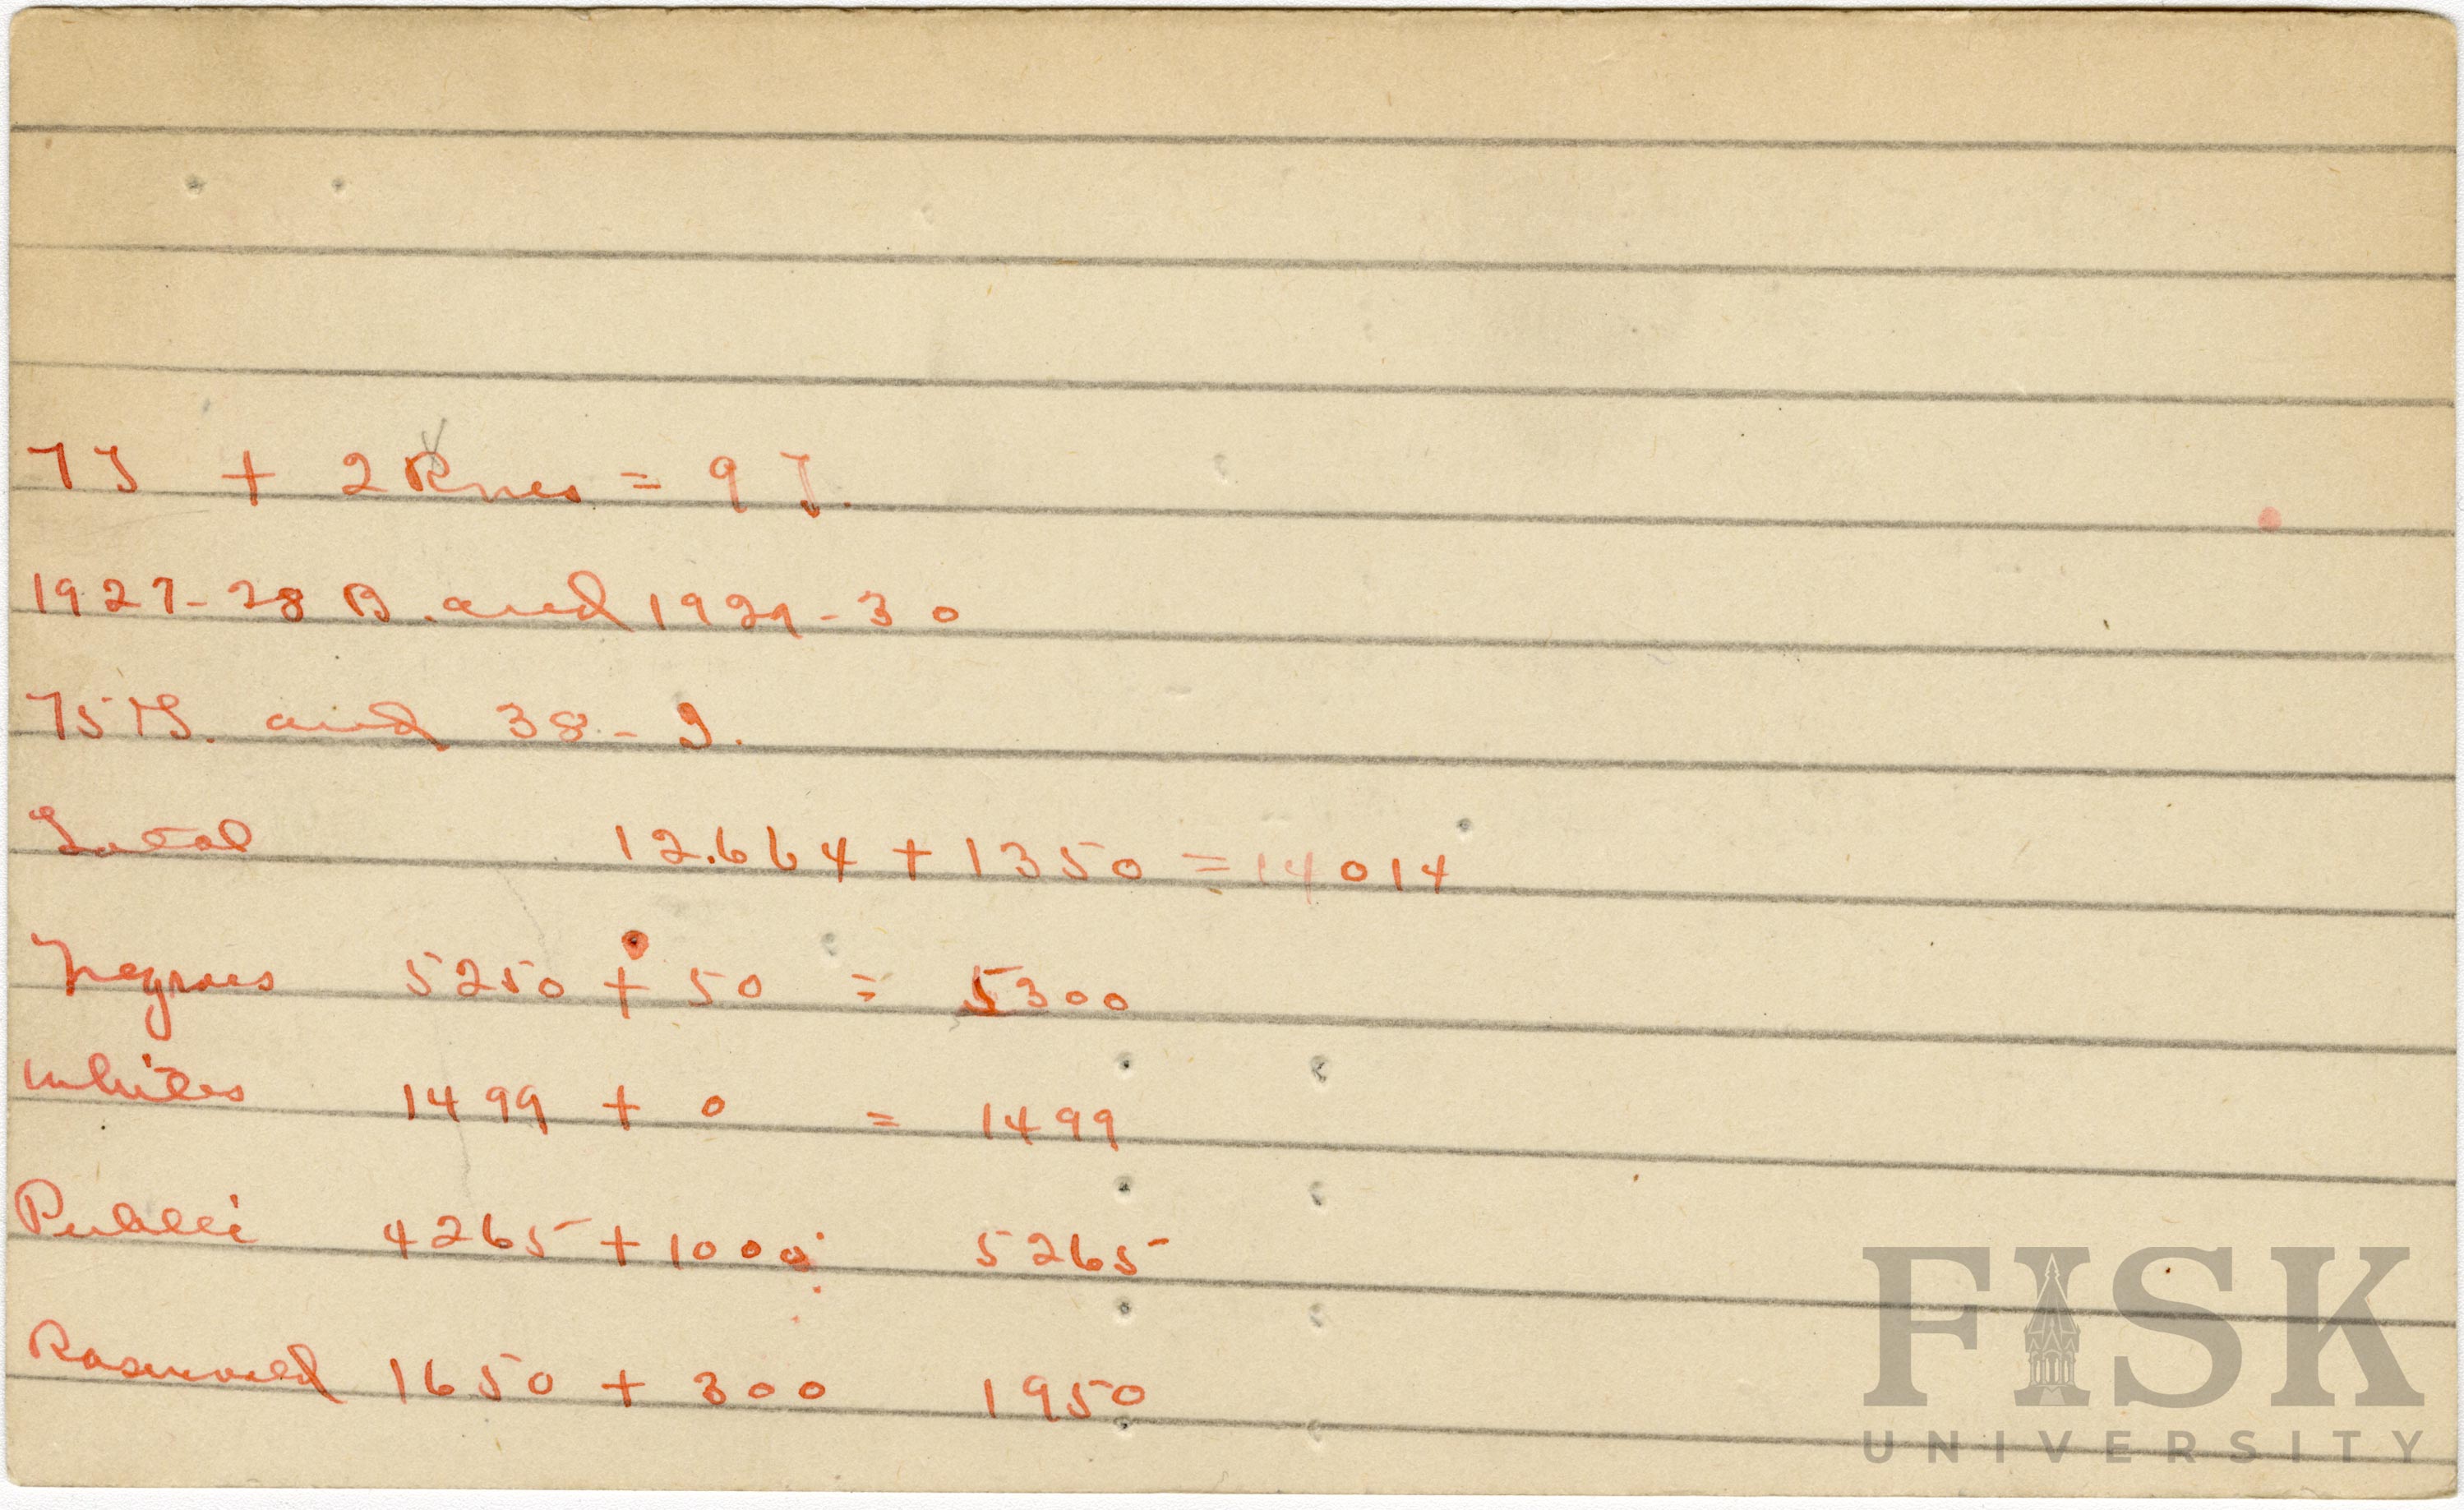 7 T + 2 Rms = 9 T.
1927-28 B. and 1929-30
75 TS. and 38-J.
Total 12.664 + 1350 = 14014
Negroes 5250 + 50 = 5300
Whites 1499 + 0 = 1499
Public 4265 + 1000 5265
Rosenwald 1650 + 300 1950
FISK
UNIVERSITY